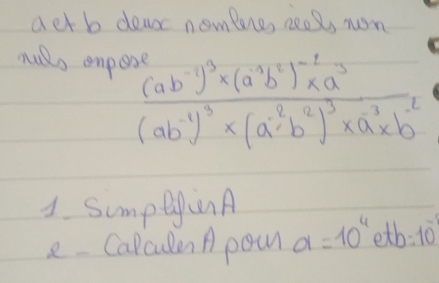 a et b deux nombres réels non
nuls on pose
(ab⁻²)³ × (a⁻³b²)⁻² × a³
(ab⁻¹)³ × (a⁻²b²)³ × a⁻³ × b⁻²
1 - Simplifier A
2 - Calculer A pour a = 10⁴ et b = 10⁻